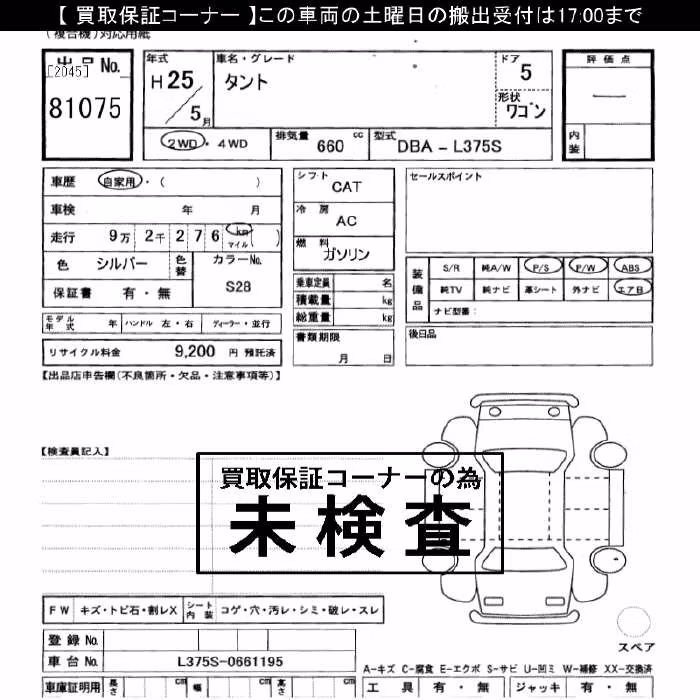 【 買取保証コーナー 】この車両の土曜日の搬出受付は17:00まで
(複合機)対応用紙
出品No.
[2045]
81075
年式
H25
5月
車名・グレード
タント
ドア
5
形状
ワゴン
評価点
―
内装
2WD・4WD
排気量 660 cc
型式 DBA - L375S
車歴 自家用・( )
車検 年 月
走行 9万 2千 2 7 6 km マイル ( )
色 シルバー 色替 カラーNo.
S28
保証書 有・無
モデル年式 年 ハンドル 左・右 ディーラー・並行
リサイクル料金 9,200 円 預託済
シフト CAT
冷房 AC
燃料 ガソリン
乗車定員 名
積載量 kg
総重量 kg
書類期限
月 日
セールスポイント
装備品
S/R 純A/W P/S P/W ABS
純TV 純ナビ 革シート 外ナビ エアB
ナビ型番:
後日品
【出品店申告欄(不良箇所・欠品・注意事項等)】
【検査員記入】
買取保証コーナーの為
未検査
FW キズ・トビ石・割レX シート内装 コゲ・穴・汚レ・シミ・破レ・スレ
登録 No.
車台 No. L375S-0661195
車庫証明用 長さ cm 幅 cm 高さ cm
スペア
A-キズ C-腐食 E-エクボ S-サビ U-凹ミ W-補修 XX-交換済
工具 有・無 ジャッキ 有・無